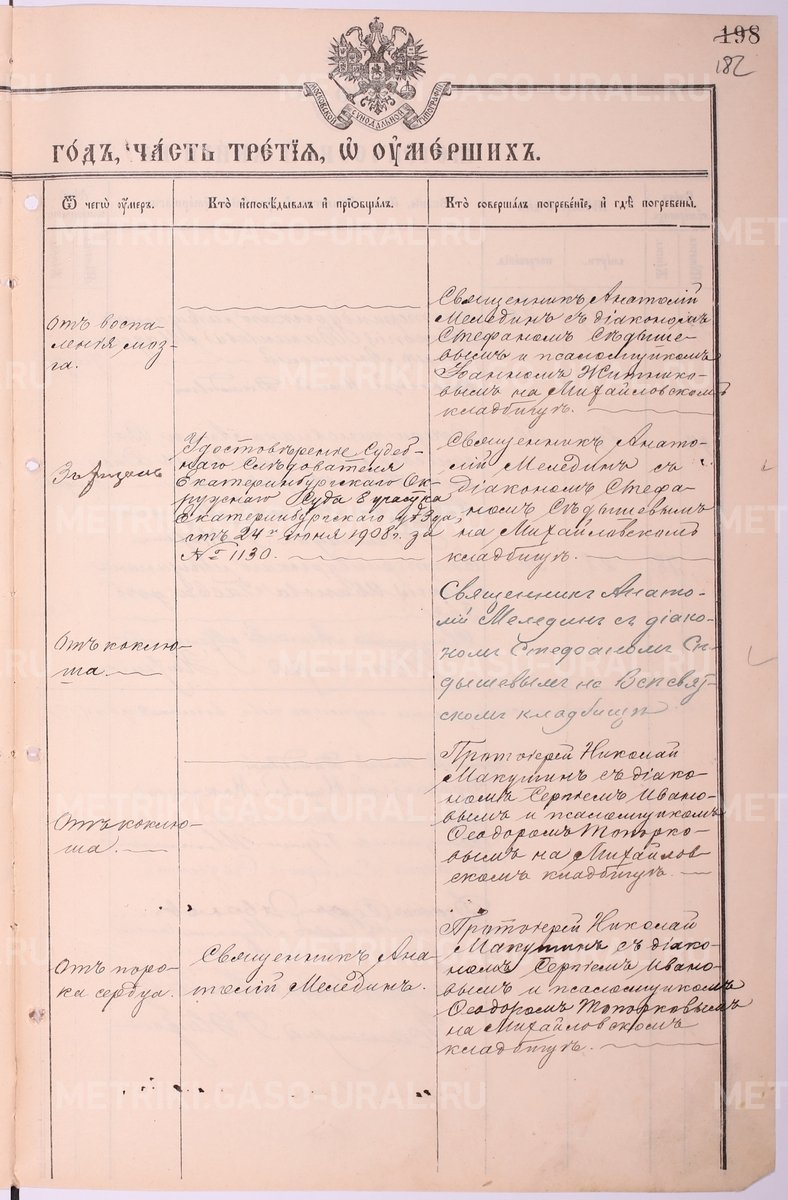 198
182
МОСКОВСКОЙ СѴНОДАЛЬНОЙ ТИПОГРАФІИ
ГО́ДЪ, ЧА́СТЬ ТРЕ́ТІЯ, Ѿ ОУМЕ́РШИХЪ.
Ѿ чегѡ̀ оу́меръ.
Кто̀ и҆сповѣ́дывалъ и҆ прїѡбща́лъ.
Кто̀ соверша́лъ погребе́нїе, и҆ гдѣ̀ погребены̀.
Отъ воспа-
ленія моз-
га.
Священникъ Анатолій
Меледин съ діакономъ
Стефаномъ Сѣдыше-
вымъ и псаломщикомъ
Іоанномъ Житнико-
вымъ на Михайловскомъ
кладбищѣ.
Удостовѣреніе Судеб-
наго Слѣдователя
Екатеринбургскаго Ок-
ружнаго Суда 8 участка
Екатеринбургскаго уѣзда,
отъ 24 іюня 1908 г. за
№ 1130.
Священникъ Анато-
лій Мелединъ съ
діакономъ Стефа-
номъ Сѣдышевымъ
на Михайловскомъ
кладбищѣ.
Отъ коклю-
ша.
Священникъ Анато-
лій Мелединъ съ діако-
номъ Стефаномъ Сѣ-
дышевымъ на Всесвят-
скомъ кладбищѣ
Отъ коклю-
ша.
Протоіерей Николай
Макушинъ съ діако-
номъ Сергіемъ Ивано-
вымъ и псаломщикомъ
Ѳеодоромъ Топорко-
вымъ на Михайлов-
скомъ кладбищѣ.
Отъ поро-
ка сердца.
Священникъ Ана-
толій Мелединъ.
Протоіерей Николай
Макушинъ съ діако-
номъ Сергіемъ Ивано-
вымъ и псаломщикомъ
Ѳеодоромъ Топорковымъ
на Михайловскомъ
кладбищѣ.
METRIKI.GASO-URAL.RU